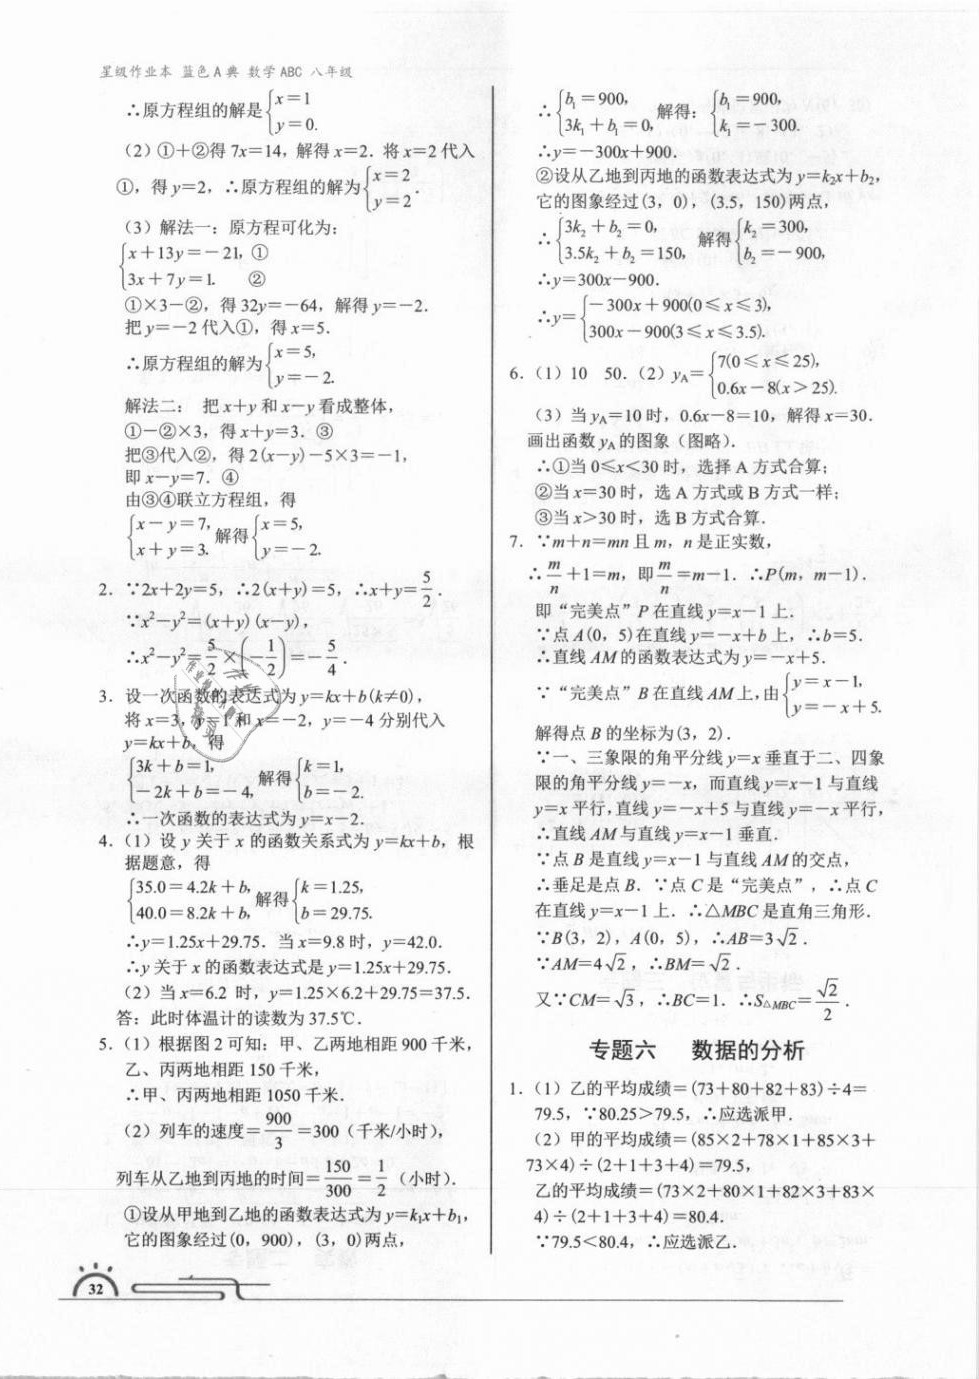 星级作业本 蓝色A典 数学ABC 八年级
∴原方程组的解是{x=1 y=0.
(2)①+②得7x=14,解得x=2.将x=2代入
①,得y=2,∴原方程组的解为{x=2 y=2.
(3)解法一:原方程可化为:
{x+13y=-21,① 3x+7y=1. ②
①×3-②,得32y=-64,解得y=-2.
把y=-2代入①,得x=5.
∴原方程组的解为{x=5, y=-2.
解法二: 把x+y和x-y看成整体,
①-②×3,得x+y=3.③
把③代入②,得2(x-y)-5×3=-1,
即x-y=7.④
由③④联立方程组,得
{x-y=7, x+y=3. 解得{x=5, y=-2.
2. ∵2x+2y=5,∴2(x+y)=5,∴x+y=5/2.
∵x²-y²=(x+y)(x-y),
∴x²-y²=5/2×(-1/2)=-5/4.
3. 设一次函数的表达式为y=kx+b(k≠0),
将x=3,y=1和x=-2,y=-4分别代入
y=kx+b,得
{3k+b=1, -2k+b=-4, 解得{k=1, b=-2.
∴一次函数的表达式为y=x-2.
4.(1)设y关于x的函数关系式为y=kx+b,根
据题意,得
{35.0=4.2k+b, 40.0=8.2k+b, 解得{k=1.25, b=29.75.
∴y=1.25x+29.75.当x=9.8时,y=42.0.
∴y关于x的函数表达式是y=1.25x+29.75.
(2)当x=6.2 时,y=1.25×6.2+29.75=37.5.
答:此时体温计的读数为37.5℃.
5.(1)根据图2可知:甲、乙两地相距900千米,
乙、丙两地相距150千米,
∴甲、丙两地相距1050千米.
(2)列车的速度=900/3=300(千米/小时),
列车从乙地到丙地的时间=150/300=1/2(小时).
①设从甲地到乙地的函数表达式为y=k₁x+b₁,
它的图象经过(0,900),(3,0)两点,
∴{b₁=900, 3k₁+b₁=0, 解得:{b₁=900, k₁=-300.
∴y=-300x+900.
②设从乙地到丙地的函数表达式为y=k₂x+b₂,
它的图象经过(3,0),(3.5,150)两点,
∴{3k₂+b₂=0, 3.5k₂+b₂=150, 解得{k₂=300, b₂=-900,
∴y=300x-900.
∴y={-300x+900(0≤x≤3), 300x-900(3≤x≤3.5).
6.(1)10 50.(2)yA={7(0≤x≤25), 0.6x-8(x>25).
(3)当yA=10时,0.6x-8=10,解得x=30.
画出函数yA的图象(图略).
∴①当0≤x<30时,选择A方式合算;
②当x=30时,选A方式或B方式一样;
③当x>30时,选B方式合算.
7. ∵m+n=mn且m,n是正实数,
∴m/n+1=m,即m/n=m-1.∴P(m,m-1).
即“完美点”P在直线y=x-1上.
∵点A(0,5)在直线y=-x+b上,∴b=5.
∴直线AM的函数表达式为y=-x+5.
∵“完美点”B在直线AM上,由{y=x-1, y=-x+5.
解得点B的坐标为(3,2).
∵一、三象限的角平分线y=x垂直于二、四象
限的角平分线y=-x,而直线y=x-1与直线
y=x平行,直线y=-x+5与直线y=-x平行,
∴直线AM与直线y=x-1垂直.
∵点B是直线y=x-1与直线AM的交点,
∴垂足是点B.∵点C是“完美点”,∴点C
在直线y=x-1上.∴△MBC是直角三角形.
∵B(3,2),A(0,5),∴AB=3√2.
∵AM=4√2,∴BM=√2.
又∵CM=√3,∴BC=1.∴S△MBC=√2/2.
专题六 数据的分析
1.(1)乙的平均成绩=(73+80+82+83)÷4=
79.5,∵80.25>79.5,∴应选派甲.
(2)甲的平均成绩=(85×2+78×1+85×3+
73×4)÷(2+1+3+4)=79.5,
乙的平均成绩=(73×2+80×1+82×3+83×
4)÷(2+1+3+4)=80.4.
∵79.5<80.4,∴应选派乙.
32